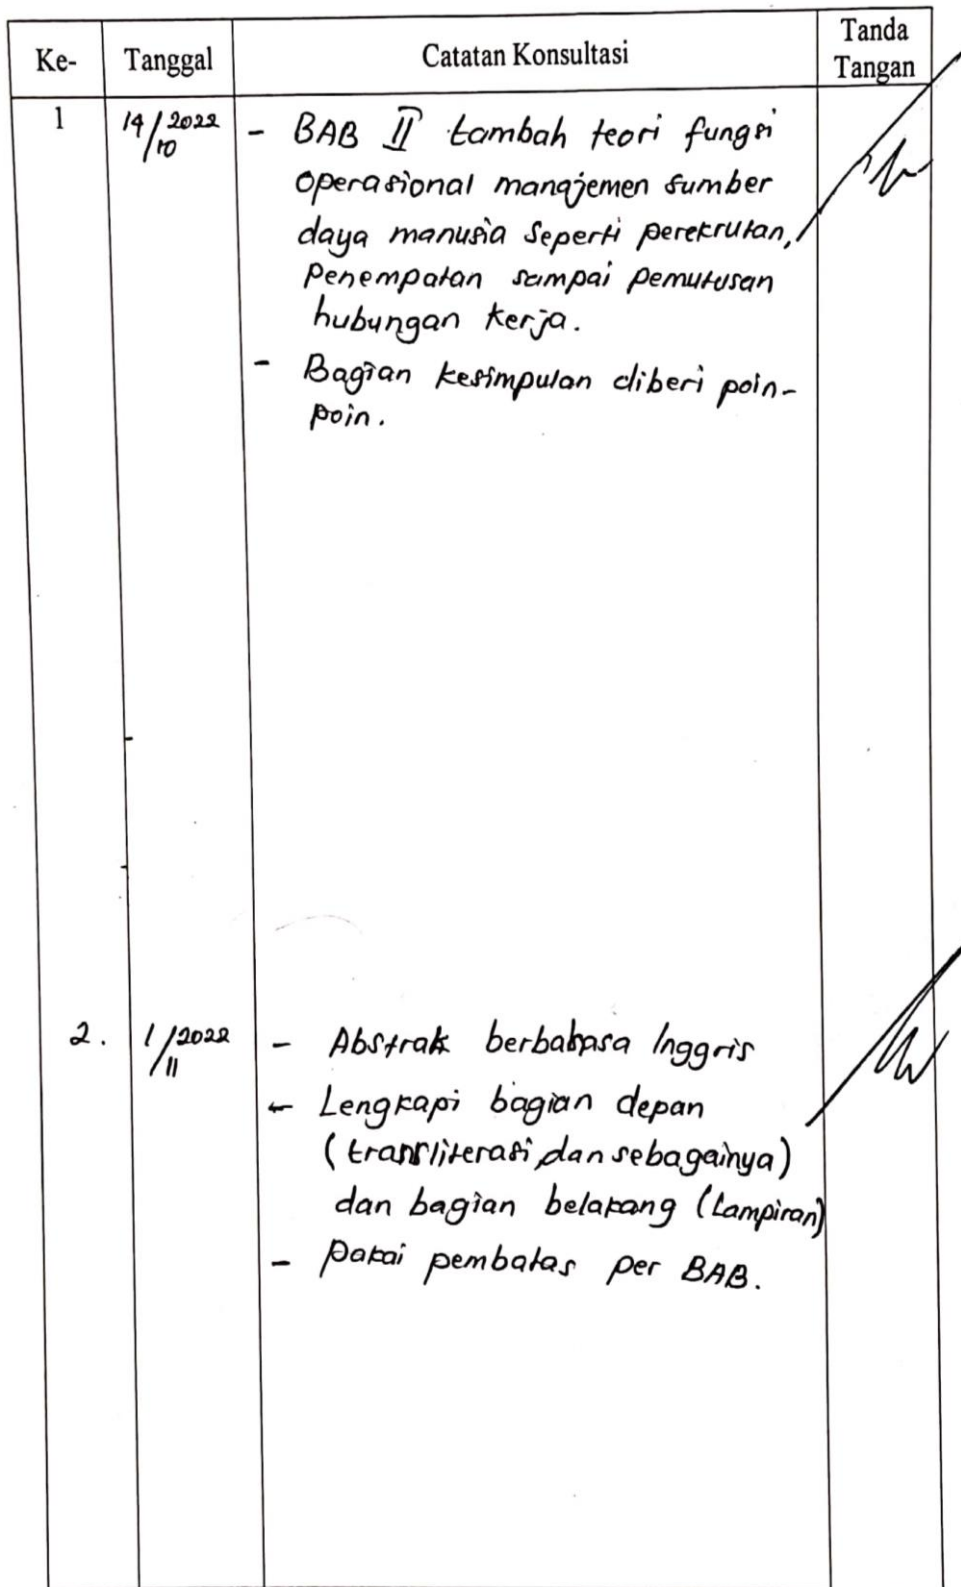 Ke- Tanggal Catatan Konsultasi Tanda Tangan
1 14/10 2022 - BAB II tambah teori fungsi
operasional manajemen sumber
daya manusia seperti perekrutan,
penempatan sampai pemutusan
hubungan kerja.
- Bagian kesimpulan diberi poin-
poin.
2. 1/11 2022 - Abstrak berbahasa Inggris
- Lengkapi bagian depan
(transliterasi, dan sebagainya)
dan bagian belakang (Lampiran)
- Pakai pembatas per BAB.